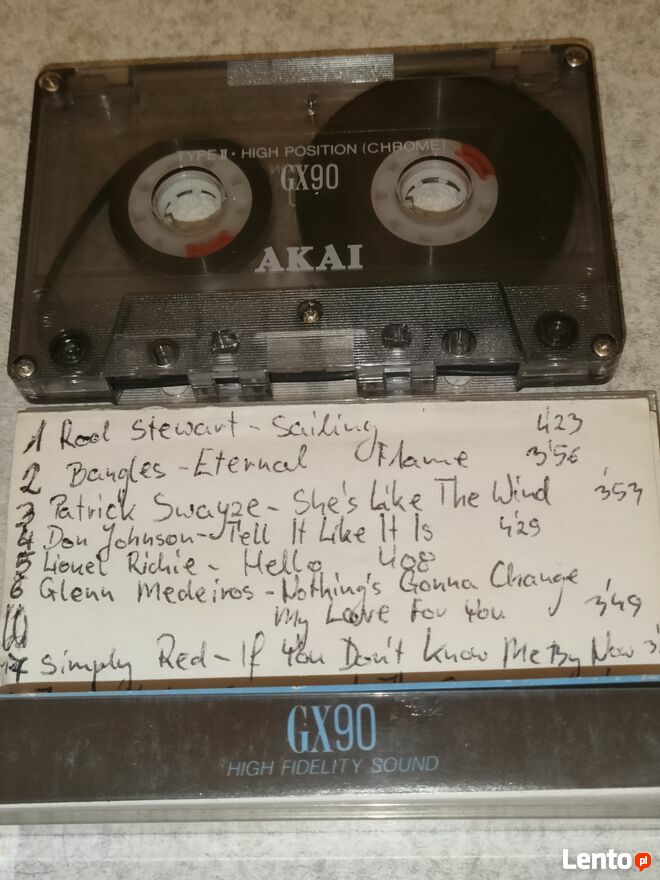 TYPE II • HIGH POSITION (CHROME)
GX90
AKAI
1 Rod Stewart - Sailing 4'23
2 Bangles - Eternal Flame 3'56
3 Patrick Swayze - She's Like The Wind 3'53
4 Don Johnson - Tell It Like It Is 4'29
5 Lionel Richie - Hello 4'08
6 Glenn Medeiros - Nothing's Gonna Change
My Love For You 3'49
7 Simply Red - If You Don't Know Me By Now 3'
GX90
HIGH FIDELITY SOUND
Lento.pl